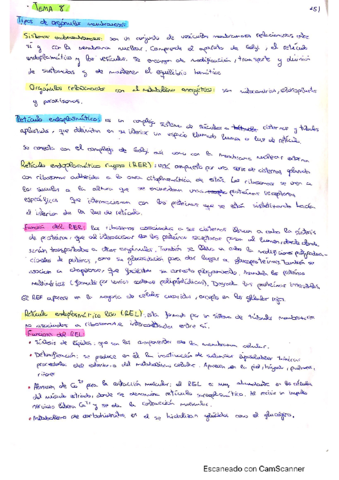 TEMA 8
Tipos de orgánulos membranosos:
Sistemas endomembranosos: son un conjunto de vesículas membranosas relacionadas entre
sí y con la membrana nuclear. Comprende el aparato de Golgi, el retículo
endoplasmático y las vesículas. Se encargan de modificación, transporte y división
de sustancias y de mantener el equilibrio
Orgánulos relacionados con el metabolismo energético: son mitocondrias, cloroplastos
y peroxisomas.
Retículo endoplasmático: es un complejo sistema de cisternas y túbulos
aplanados, que delimitan en su interior un espacio llamado lumen o luz de retículo.
Se conecta con el complejo de Golgi así como con la membrana nuclear externa
Retículo endoplasmático rugoso (RER): está compuesto por una serie de cisternas
con ribosomas adheridos a la cara citoplasmática de estas. Los ribosomas se unen a
proteínas
específicas que interaccionan con las proteínas que se están sintetizando hacia
el interior de la luz de retículo.
Función del RER: Los ribosomas asociados a sus cisternas llevan a cabo la síntesis
de proteínas
serán transportadas a otros orgánulos. También se lleva a cabo la
de proteínas, como su glucosilación para dar lugar a glucoproteínas. También se
asocian a chaperonas que facilitan su correcto plegamiento.
El RER aparece en la mayoría de células excepto en los glóbulos rojos
Retículo endoplasmático liso (REL): está formado por un sistema de túbulos membranosos
no asociados a ribosomas e interconectados entre sí.
Funciones del REL:
• Síntesis de lípidos, que son los componentes de las membranas celulares.
• Detoxificación: se produce en él la inactivación de sustancias
procedentes del exterior o del metabolismo celular. Aparece en la piel, hígado, pulmones,
riñón
• Almacén de Ca²⁺ para la contracción muscular, el REL es muy abundante en las células
del músculo estriado, donde se denomina retículo sarcoplasmático. Al recibir un impulso
nervioso libera Ca²⁺ y se da la contracción muscular.
• Metabolismo de carbohidratos en él se hidroliza glucógeno
Escaneado con CamScanner